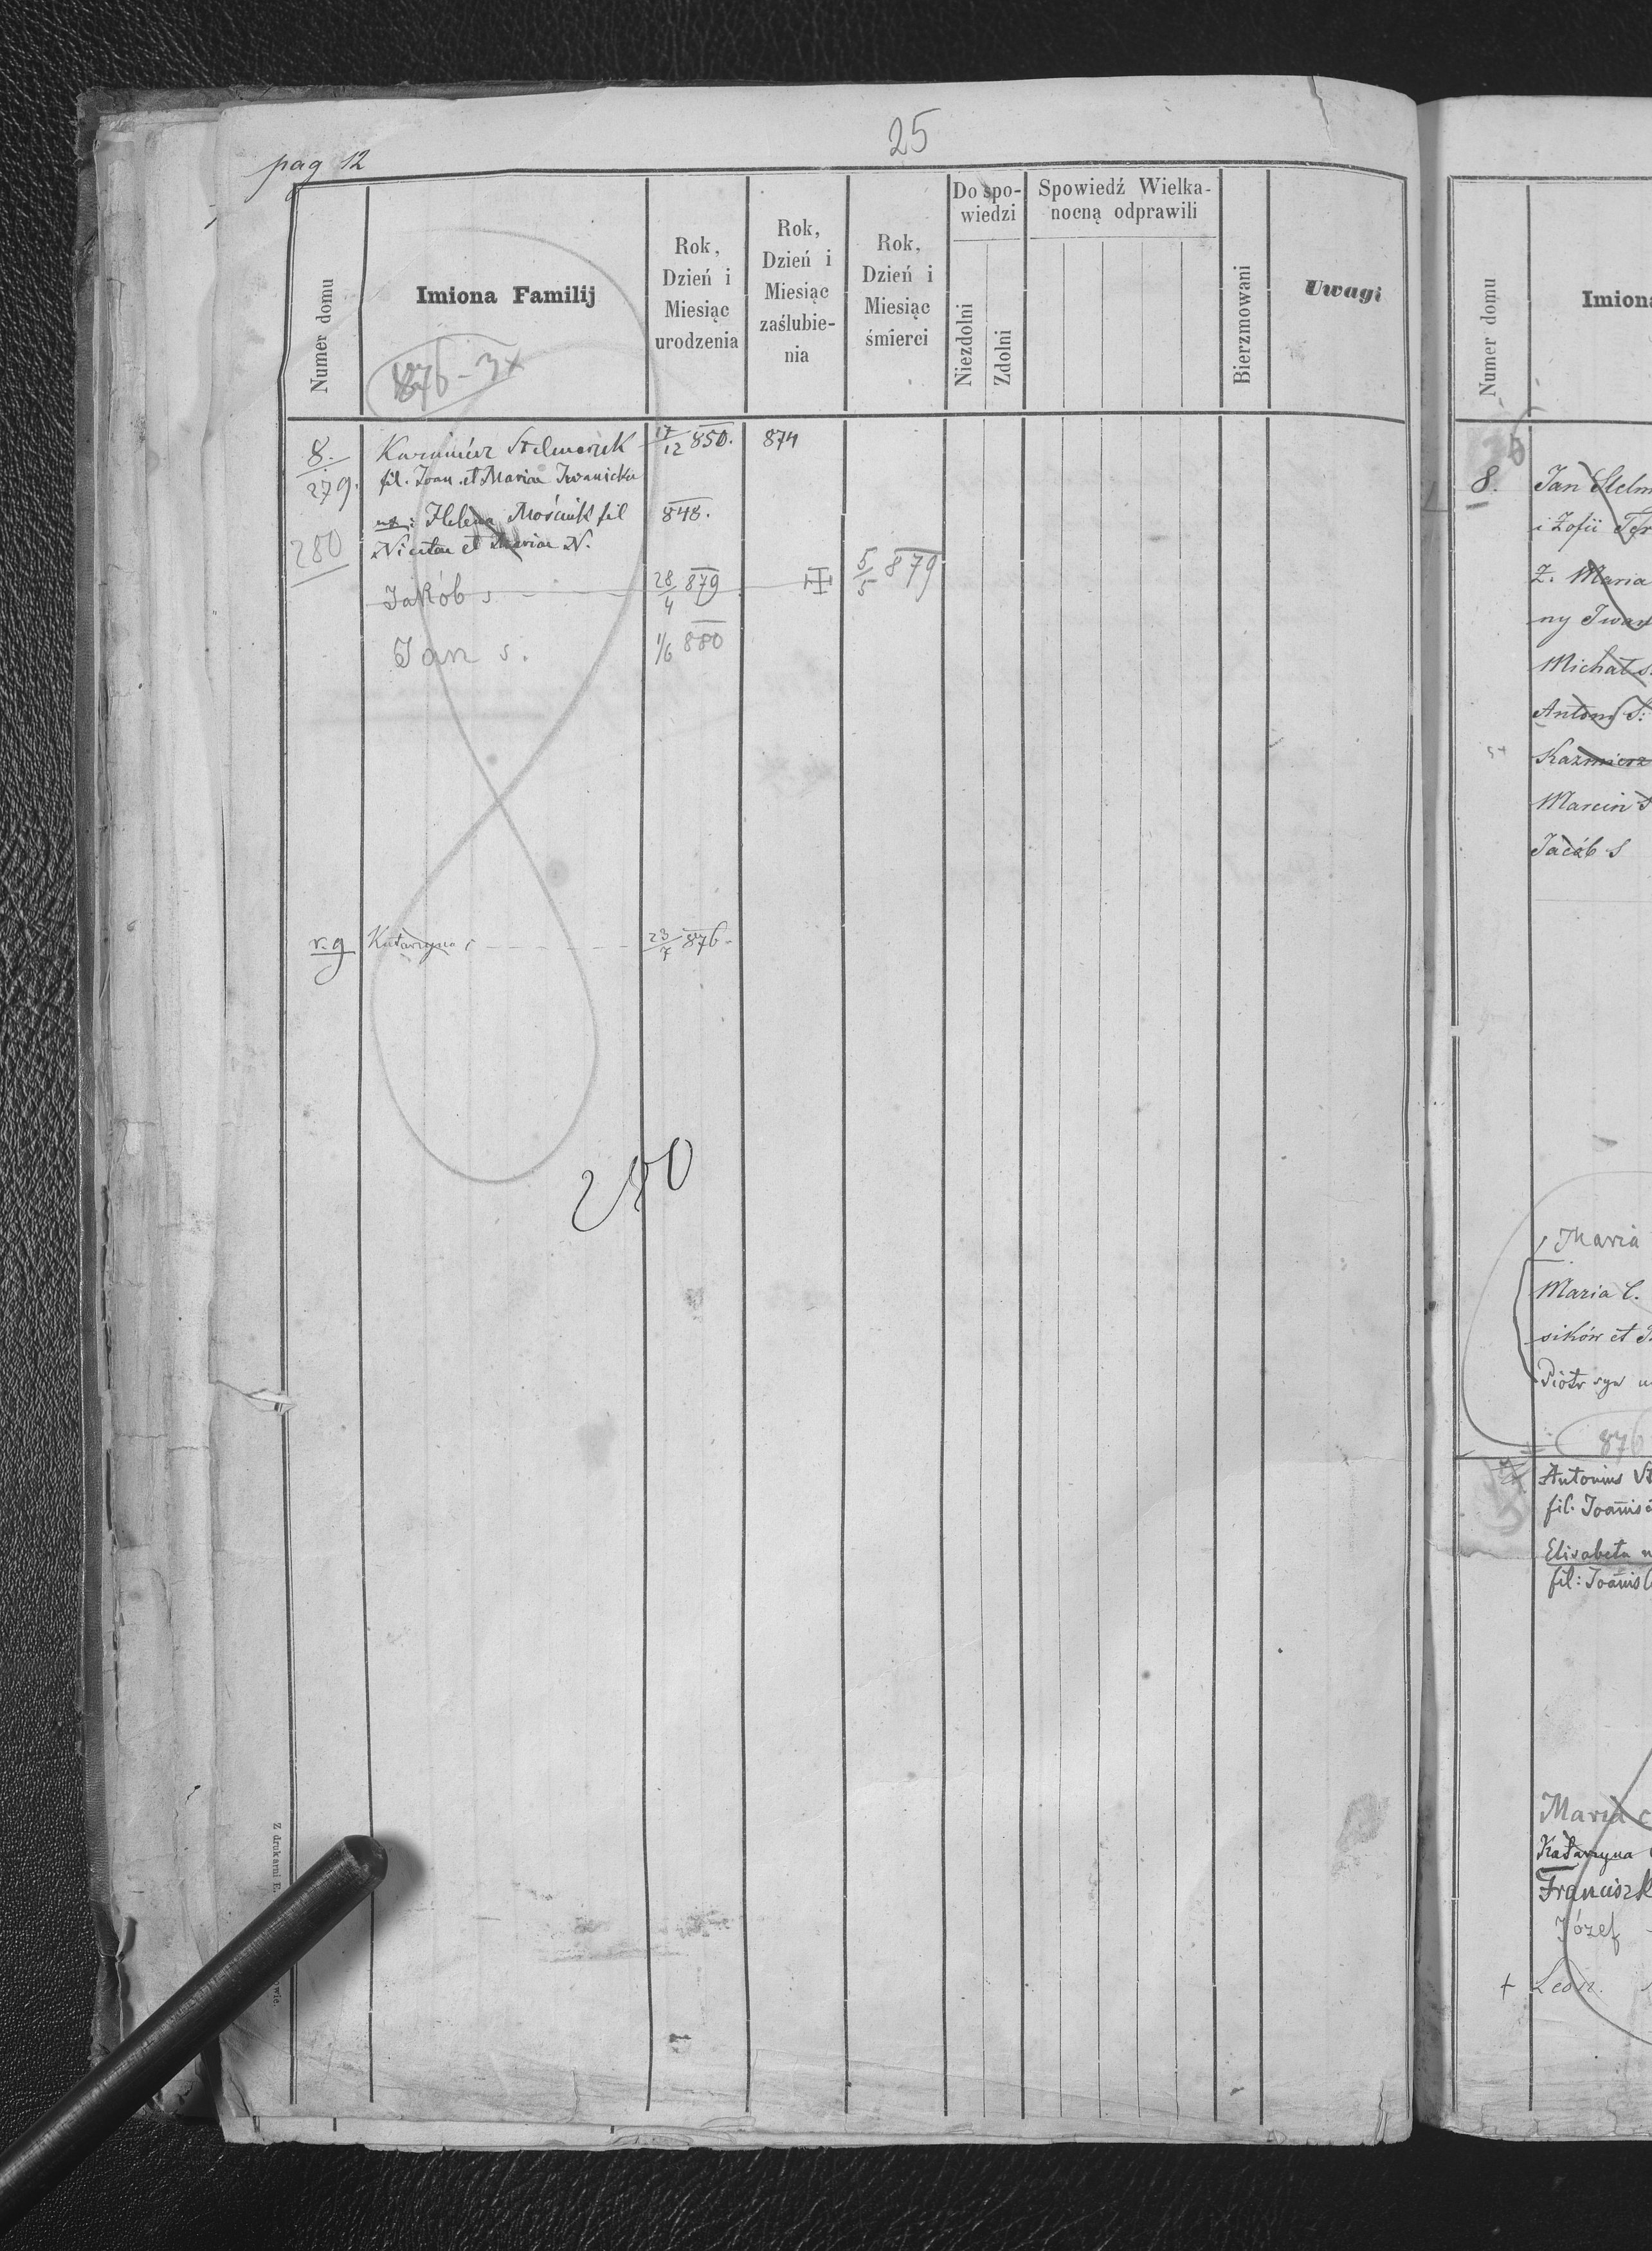 25
pag 12
Numer domu
Imiona Familij
Rok,
Dzień i
Miesiąc
urodzenia
Rok,
Dzień i
Miesiąc
zaślubie-
nia
Rok,
Dzień i
Miesiąc
śmierci
Do spo-
wiedzi
Niezdolni
Zdolni
Spowiedź Wielka-
nocną odprawili
Bierzmowani
Uwagi
876 - 3+
8. Kazimierz Stelmaszuk 17/12 850. 874
279. fil. Joan. et Mariae Iwanicka
ux: Helena Mościuk fil 848.
280 Nicetae et Mariae N.
Jakób s 28/4 879 5/5 879
Jan s. 1/6 880
r. g Katarzyna 23/7 876
280
Z drukarni E.
Numer domu
8. Jan Stelm
i Zofii
Ż. Maria
ny Iwan
Michał s.
Antoni S.
Kazmierz
Marcin S
Jacób S
Maria
Maria C.
sików et
Piotr syn
876
Antonius
fil. Joannis
Elisabeta
fil: Joannis
Maria c
Katarzyna
Franciszk
Józef
+ Leon.